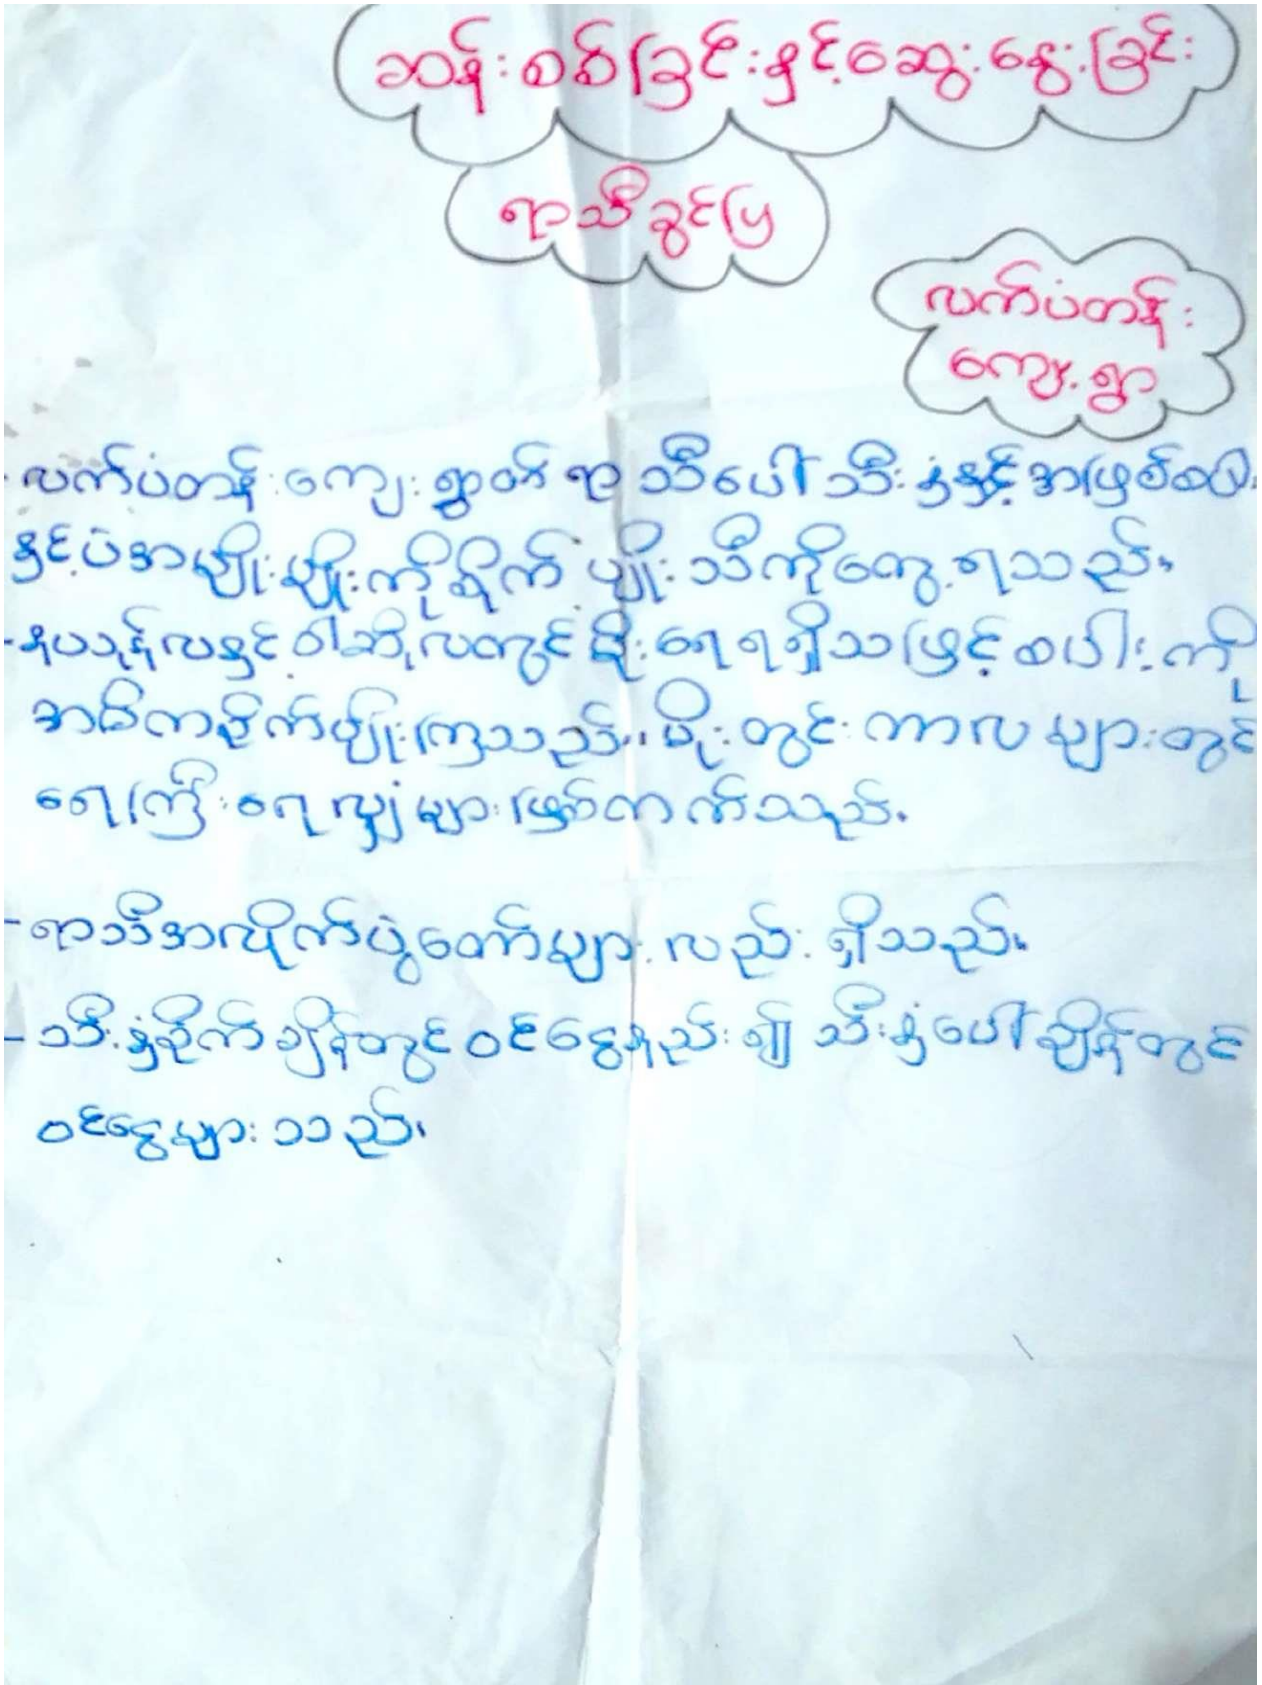 ဆန်းစစ်ခြင်းနှင့်ဆွေးနွေးခြင်း
ရာသီခွင်ပြ
လက်ပံတန်း
ကျေးရွာ
- လက်ပံတန်းကျေးရွာတွင် ရာသီပေါ်သီးနှံနှင့်အဖြစ်စပါး
နှင့်ပဲအမျိုးမျိုးကိုစိုက်ပျိုးသီကိုတွေ့ရသည်။
- နယုန်လနှင့်ဝါဆိုလတွင်မိုးရေရရှိသဖြင့်စပါးကို
အဓိကစိုက်ပျိုးကြသည်။ မိုးတွင်းကာလများတွင်
ရေကြီးရေလျှံများဖြစ်တက်သည်.
- ရာသီအလိုက်ပွဲတော်များလည်းရှိသည်။
- သီးနှံစိုက်ချိန်တွင်ဝင်ငွေနည်း၍ သီးနှံပေါ်ချိန်တွင်
ဝင်ငွေများသည်။